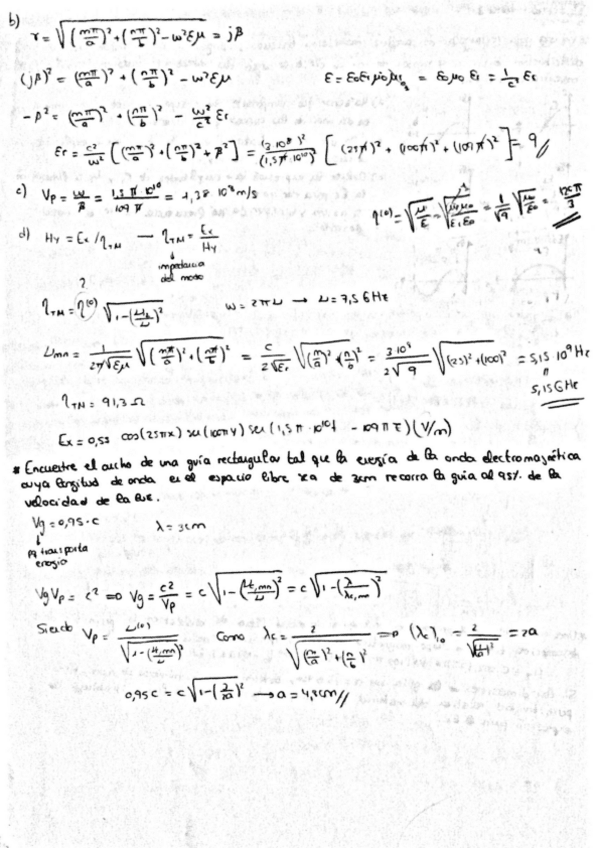 b)
γ = √((mπ/a)² + (nπ/b)² - ω²εμ) = jβ
(jβ)² = (mπ/a)² + (nπ/b)² - ω²εμ    ε = ε₀εᵢμ₀μᵢ = ε₀μ₀ εᵢ = 1/c² εᵢ
-β² = (mπ/a)² + (nπ/b)² - ω²/c² εr
εr = c²/ω² [(mπ/a)² + (nπ/b)² + β²] = (3·10⁸)²/(1,5π·10¹⁰)² [(25π)² + (100π)² + (109π)²] = 9
c) Vp = ω/β = 1,5π 10¹⁰/109π = 1,38 10⁸ m/s    η⁽⁰⁾ = √(μ/ε) = √(μᵢμ₀/εᵢε₀) = 1/√9 √(μ₀/ε₀) = 120π/3
d) Hy = Ex/ηTM → ηTM = Ex/Hy
↓
impedancia
del modo
?
ηTM = η⁽⁰⁾ √(1-(υc/υ)²)    ω = 2πυ → υ = 7,5 GHz
υmn = 1/(2π√εμ) √((mπ/a)² + (nπ/b)²) = c/(2√εr) √((m/a)² + (n/b)²) = 3 10⁸/(2√9) √((25)² + (100)²) = 5,15 10⁹ Hz
=
5,15 GHz
ηTM = 91,3 Ω
Ex = 0,53 cos(25πx) sen(100πy) sen(1,5π·10¹⁰t - 109πz) (V/m)
* Encuentre el ancho de una guía rectangular tal que la energía de la onda electromagnética
cuya longitud de onda en el espacio libre sea de 3cm recorra la guía al 95% de la
velocidad de la luz.
Vg = 0,95·c    λ = 3cm
↓
pq transporta
energía
VgVp = c² ⇒ Vg = c²/Vp = c√(1-(υc,mn/υ)²) = c√(1-(λ/λc,mn)²)
Siendo Vp = υ⁽⁰⁾/√(1-(υc,mn/υ)²)    Como λc = 2/√((m/a)²+(n/b)²) ⇒ (λc)₁₀ = 2/√((1/a)²) = 2a
0,95c = c√(1-(3/2a)²) → a = 4,8cm//